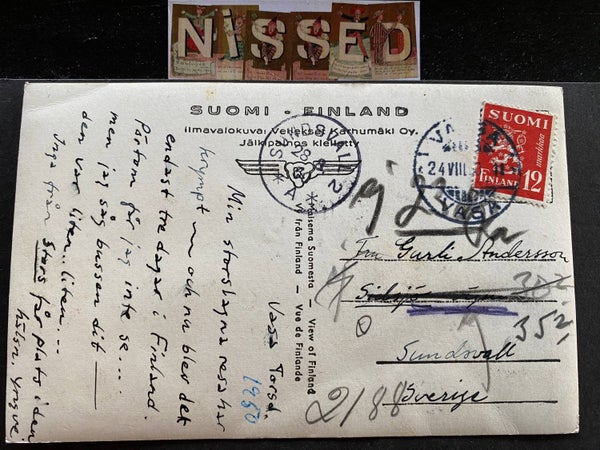 NiSSED
SUOMI - FINLAND
Ilmavalokuva: Veljekset Karhumäki Oy.
Jälkipainos kielletty
Vasa Torsd.
1950
Min storslagna resa har
krympt nu och nu blev det
endast tre dagar i Finland.
Pärtom får jag inte se...
men jag såg bussen dit —
den var liten.. liten...
Inga från Stors får plats i den
hälsn. Yngve.
Maisema Suomesta — View of Finland
Vy från Finland — Vue de Finlande
VAASA
24 VIII
VASA
SUOMI
markkaa
FINLAND 12
Fru Gurli Andersson
352
Sundsvall
Sverige
2/88